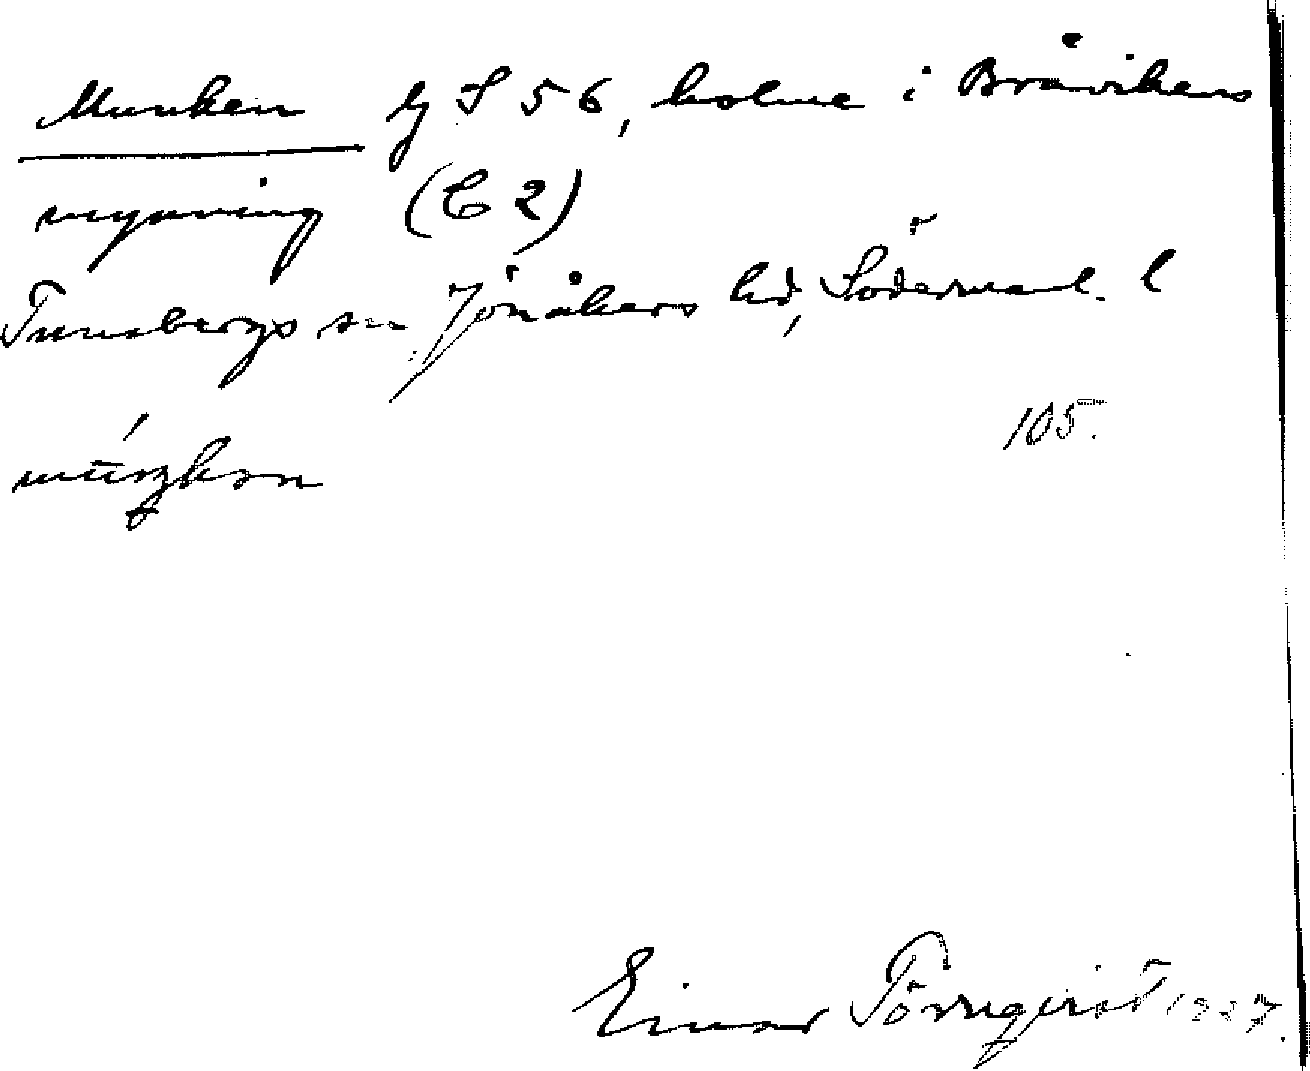 Munken Gj S 56, holme i Bråvikens
mynning (C 2)
Tunabergs sn Jönåkers hd, Södermanl. l
105.
Einar Törnqvist 1937.